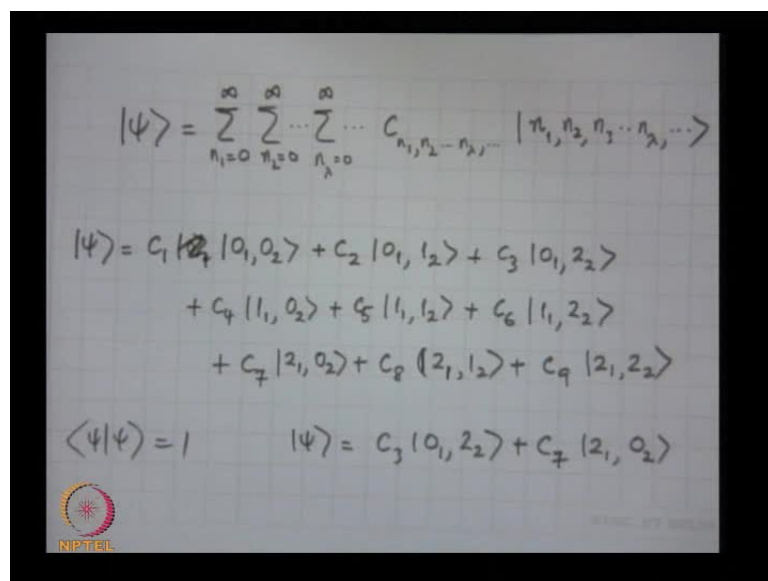 ∞ ∞ ∞
|ψ⟩ = Σ Σ ⋯ Σ ⋯ C_{n₁,n₂⋯n_λ,⋯} |n₁,n₂,n₃⋯n_λ,⋯⟩
n₁=0 n₂=0 n_λ=0
|ψ⟩ = C₁ |0₁,0₂⟩ + C₂ |0₁,1₂⟩ + C₃ |0₁,2₂⟩
+ C₄ |1₁,0₂⟩ + C₅ |1₁,1₂⟩ + C₆ |1₁,2₂⟩
+ C₇ |2₁,0₂⟩ + C₈ |2₁,1₂⟩ + C₉ |2₁,2₂⟩
⟨ψ|ψ⟩ = 1 |ψ⟩ = C₃ |0₁,2₂⟩ + C₇ |2₁,0₂⟩
NPTEL